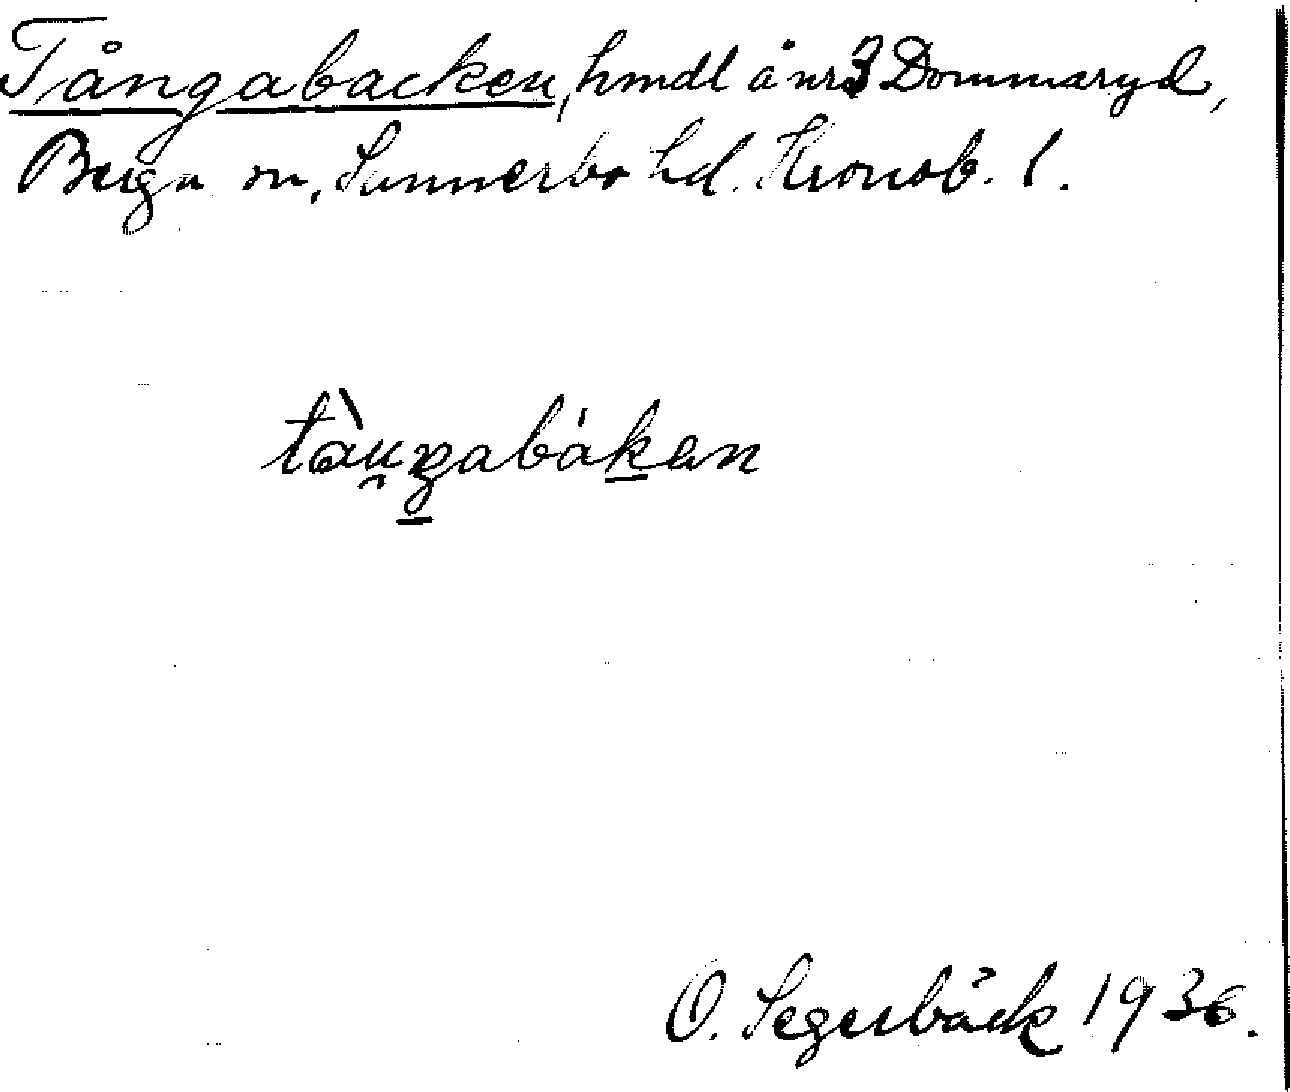 Tångabacken, hmdl å nr 3 Dommaryd,
Berga sn, Sunnerbo hd. Kronob. l.
tàu̯gabákan
O. Segerbäck 1936.